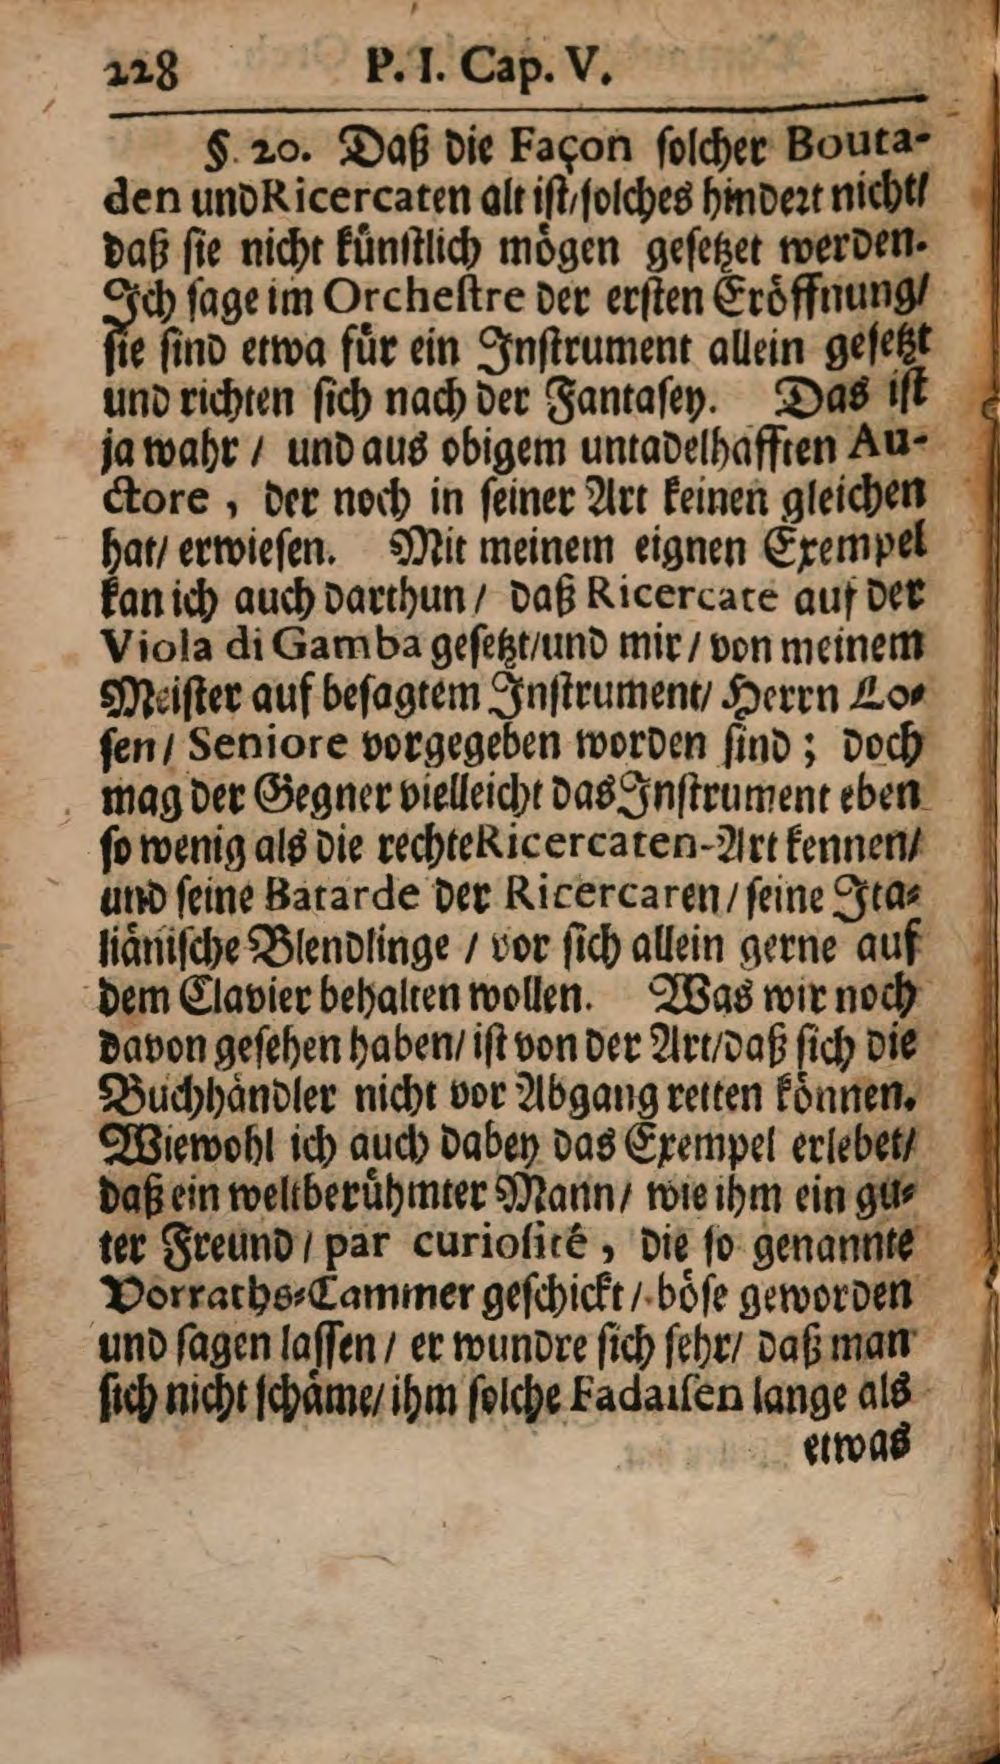 228 P. I. Cap. V.
§. 20. Daß die Façon solcher Bouta-
den und Ricercaten alt ist/ solches hindert nicht/
daß sie nicht künstlich mögen gesetzet werden.
Ich sage im Orchestre der ersten Eröffnung/
sie sind etwa für ein Instrument allein gesetzt
und richten sich nach der Fantasey. Das ist
ja wahr / und aus obigem untadelhafften Au-
ctore, der noch in seiner Art keinen gleichen
hat/ erwiesen. Mit meinem eignen Exempel
kan ich auch darthun / daß Ricercate auf der
Viola di Gamba gesetzt/und mir / von meinem
Meister auf besagtem Instrument/ Herrn Lo-
sen / Seniore vorgegeben worden sind ; doch
mag der Gegner vielleicht das Instrument eben
so wenig als die rechte Ricercaten-Art kennen/
und seine Batarde der Ricercaren / seine Ita-
liänische Blendlinge / vor sich allein gerne auf
dem Clavier behalten wollen. Was wir noch
davon gesehen haben/ ist von der Art/daß sich die
Buchhändler nicht vor Abgang retten können.
Wiewohl ich auch dabey das Exempel erlebet/
daß ein weltberühmter Mann/ wie ihm ein gu-
ter Freund / par curiosité, die so genannte
Vorraths-Cammer geschickt / böse geworden
und sagen lassen / er wundre sich sehr/ daß man
sich nicht schäme/ ihm solche Fadaisen lange als
etwas